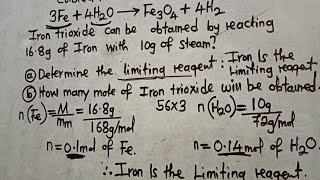 3Fe + 4H₂O → Fe₃O₄ + 4H₂
Iron trioxide can be obtained by reacting
16.8g of Iron with 10g of steam?
ⓐ Determine the limiting reagent: Iron Is the Limiting reagent
ⓑ How many mole of Iron trioxide will be obtained
n(Fe) = M/mm = 16.8g/168g/mol 56×3 n(H₂O) = 10g/72g/mol
n = 0.1mol of Fe. n = 0.14mol of H₂O.
∴ Iron Is the Limiting reagent.